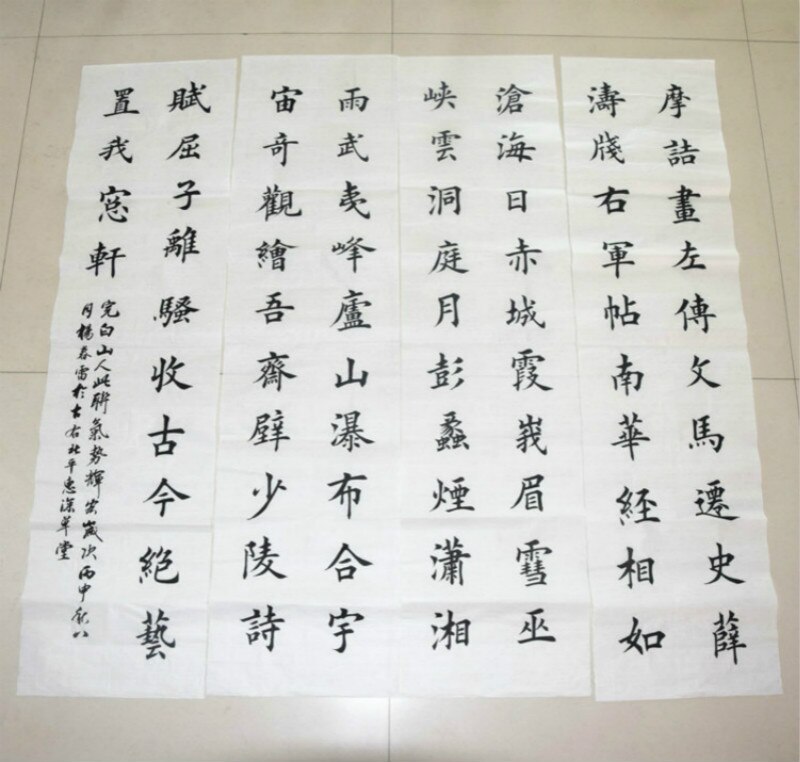 摩詰畫左傳文馬遷史薛
濤牋右軍帖南華經相如
滄海日赤城霞峩眉雪巫
峡雲洞庭月彭蠡煙瀟湘
雨武夷峰廬山瀑布合宇
宙奇觀繪吾齋壁少陵詩
賦屈子離騷收古今絕藝
置我窓軒
完白山人此聯氣勢輝宏歲次丙申秋八
月楊春雷於古右北平惠深草堂